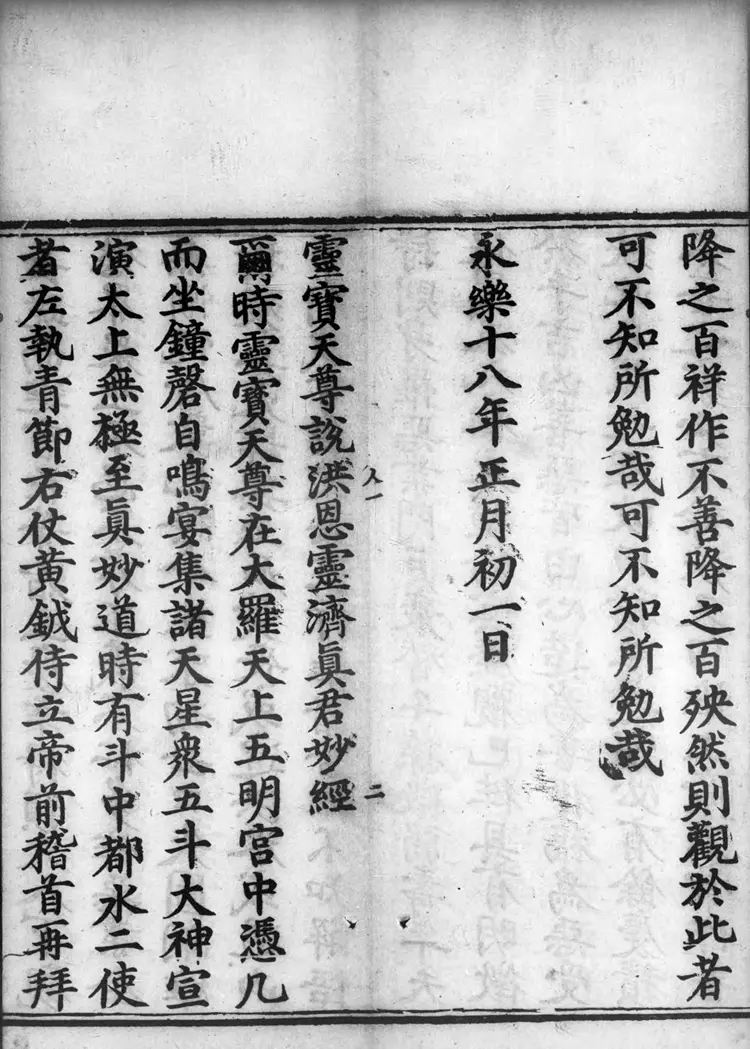 降之百祥作不善降之百殃然則觀於此者
可不知所勉哉可不知所勉哉
永樂十八年正月初一日
二
靈寶天尊說洪恩靈濟眞君妙經
爾時靈寶天尊在大羅天上五明宮中憑几
而坐鐘磬自鳴宴集諸天星衆五斗大神宣
演太上無極至眞妙道時有斗中都水二使
者左執青節右仗黃鉞侍立帝前稽首再拜